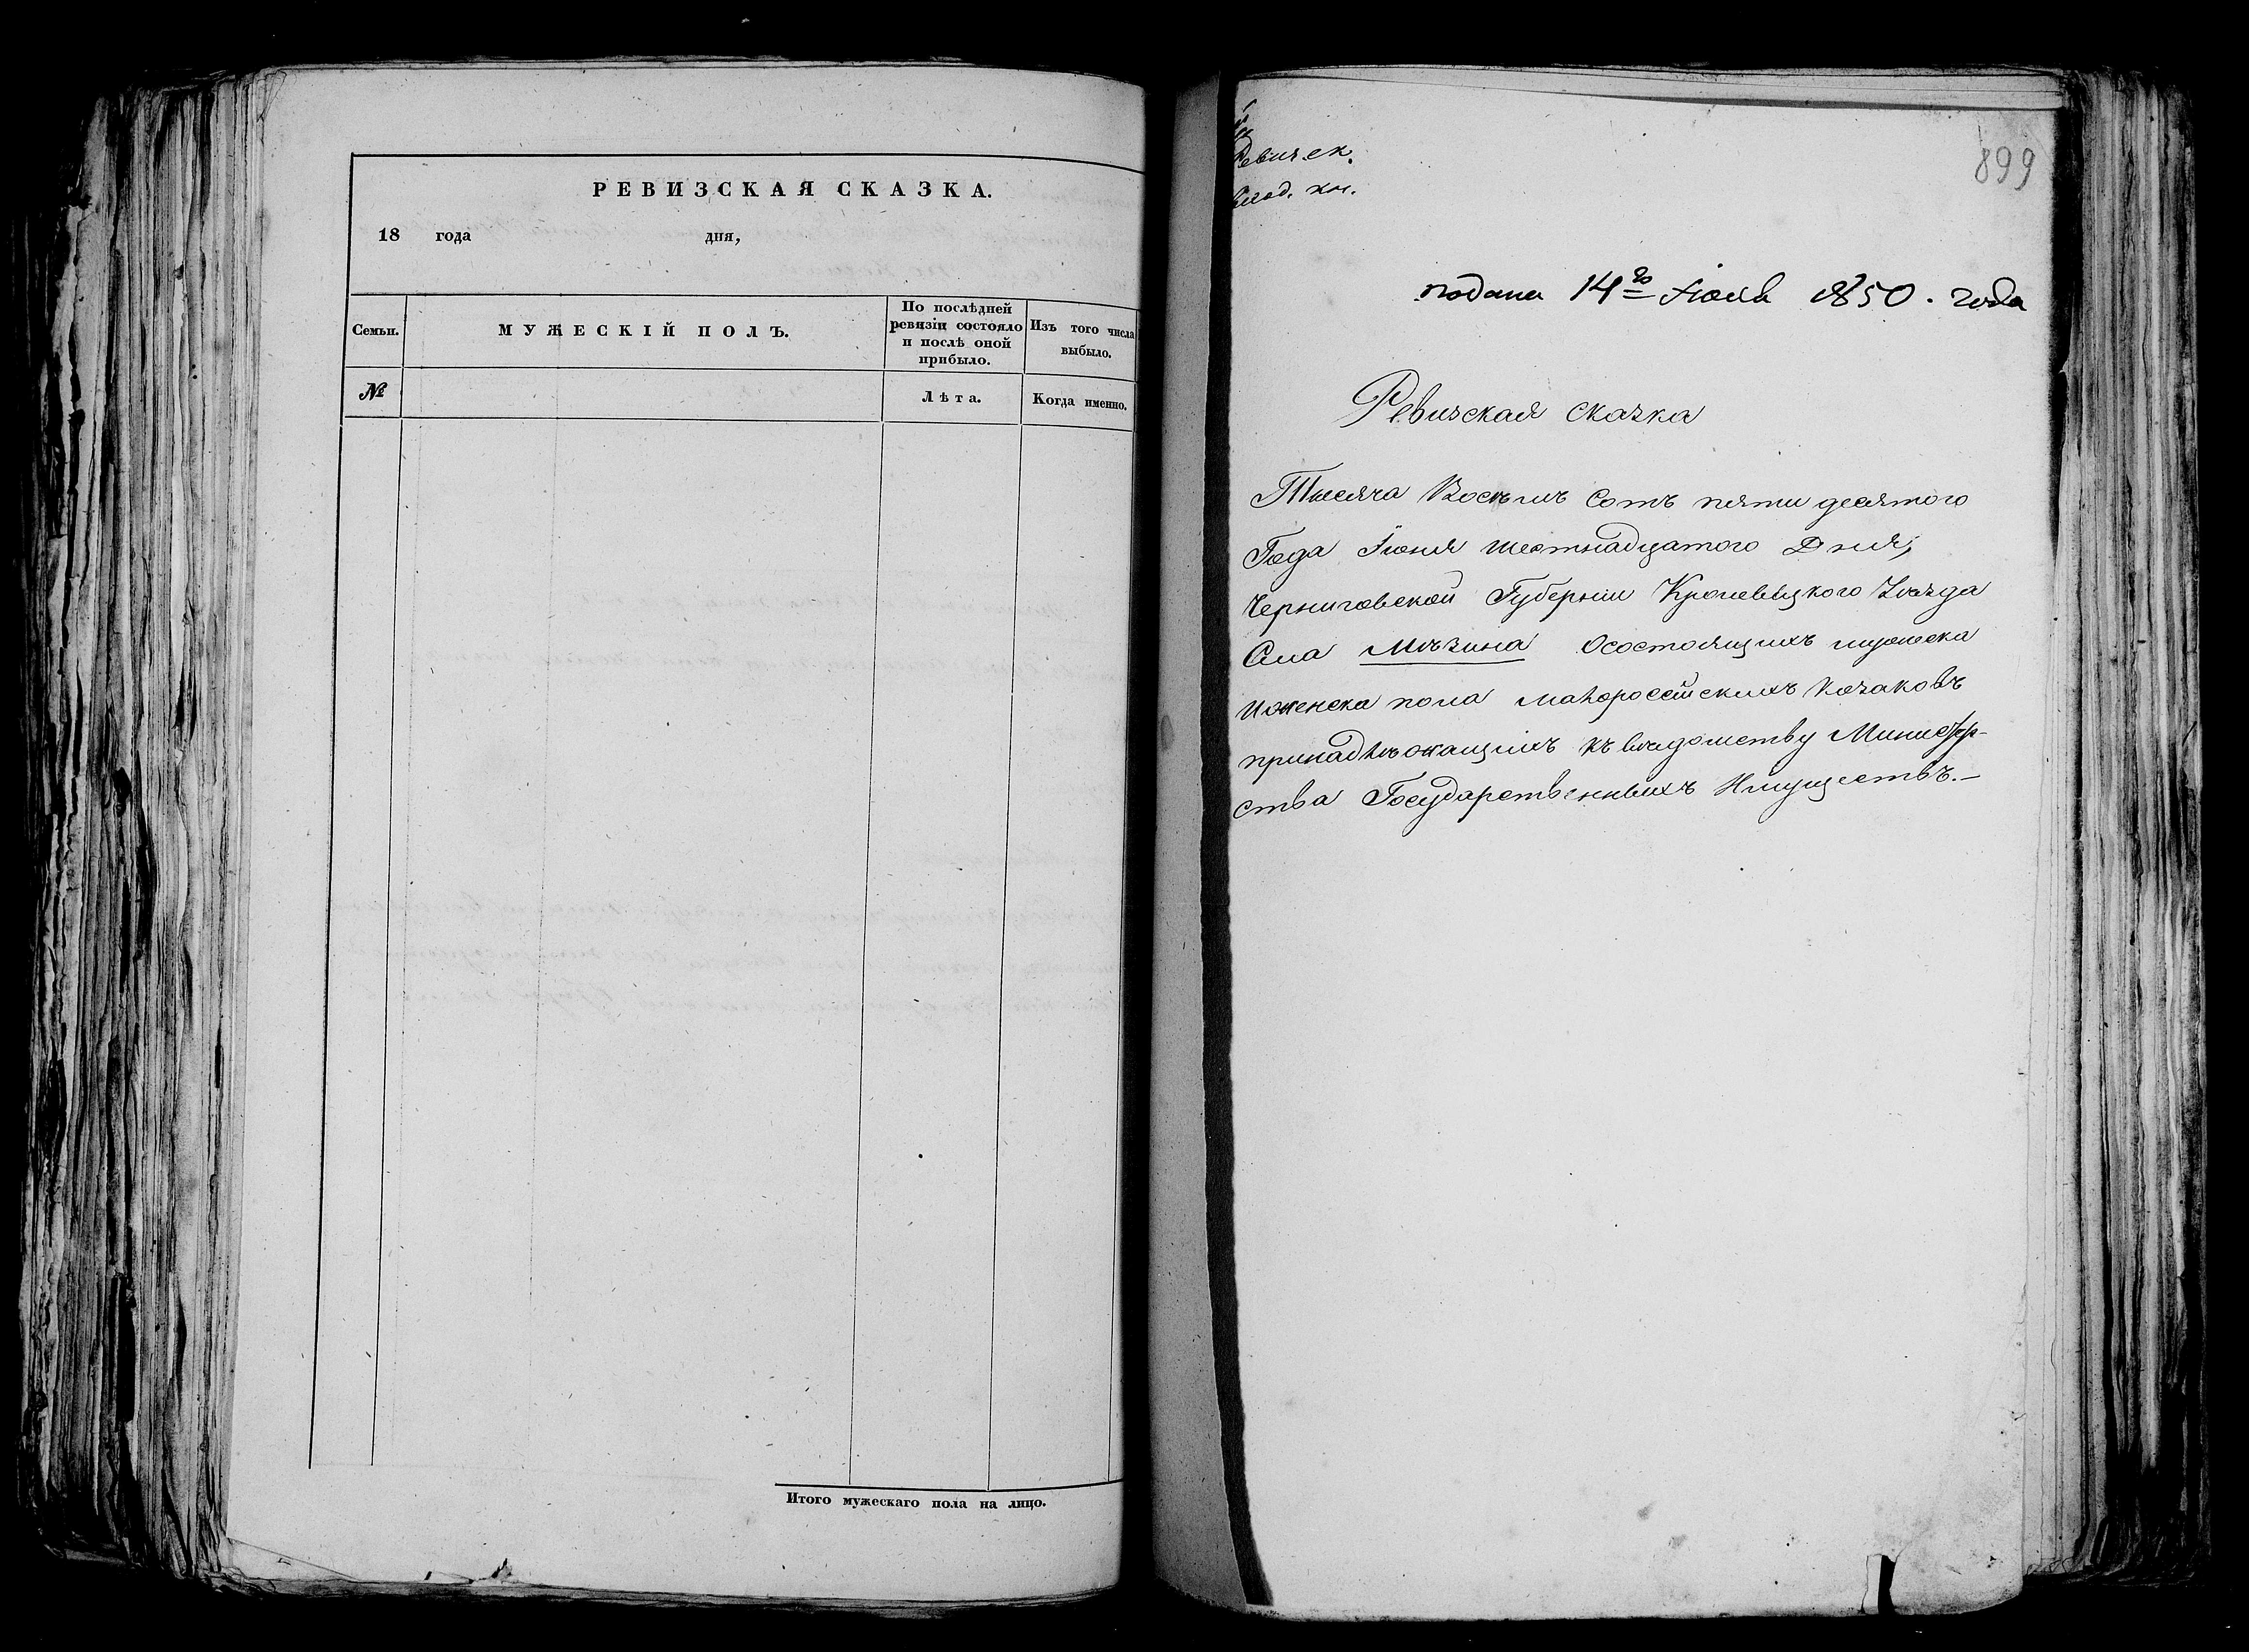 РЕВИЗСКАЯ СКАЗКА.
18 года дня,
Семьи.
МУЖЕСКІЙ ПОЛЪ.
По послѣдней
ревизіи состояло
и послѣ оной
прибыло.
Изъ того числа
выбыло.
№
Лѣта.
Когда именно.
Итого мужескаго пола на лицо.
899
Ревизск.
подана 14го Іюля 1850. года
Ревизская сказка
Тысяча Восемь сотъ пяти десятого
Года Іюня шестнадцатого Дня,
Черниговской Губерніи Кролевецкого Уѣзда
Села Мѣзина Осостоящихъ мужеска
иженска пола малороссійскихъ Козаковъ
принадлѣжащихъ къ вѣдомству Министер-
ства Государственныхъ Имуществъ.-